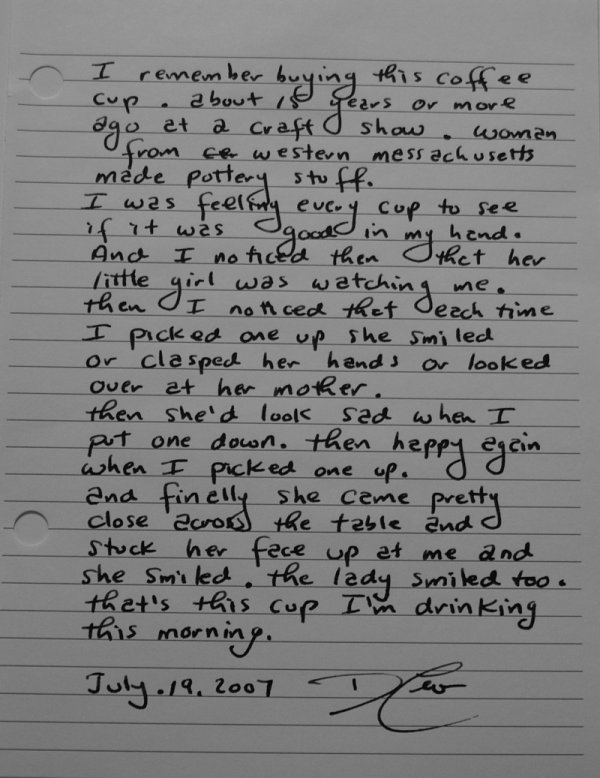 I remember buying this coffee
cup. about 15 years or more
ago at a craft show. woman
from western messachusetts
made pottery stuff.
I was feeling every cup to see
if it was good in my hand.
And I noticed then thet her
little girl was watching me.
then I noticed thet each time
I picked one up she smiled
or clasped her hands or looked
over at her mother.
then she'd look sad when I
put one down. then happy again
when I picked one up.
and finelly she came pretty
close across the table and
stuck her face up at me and
she smiled. the lady smiled too.
that's this cup I'm drinking
this morning.
July.19.2007